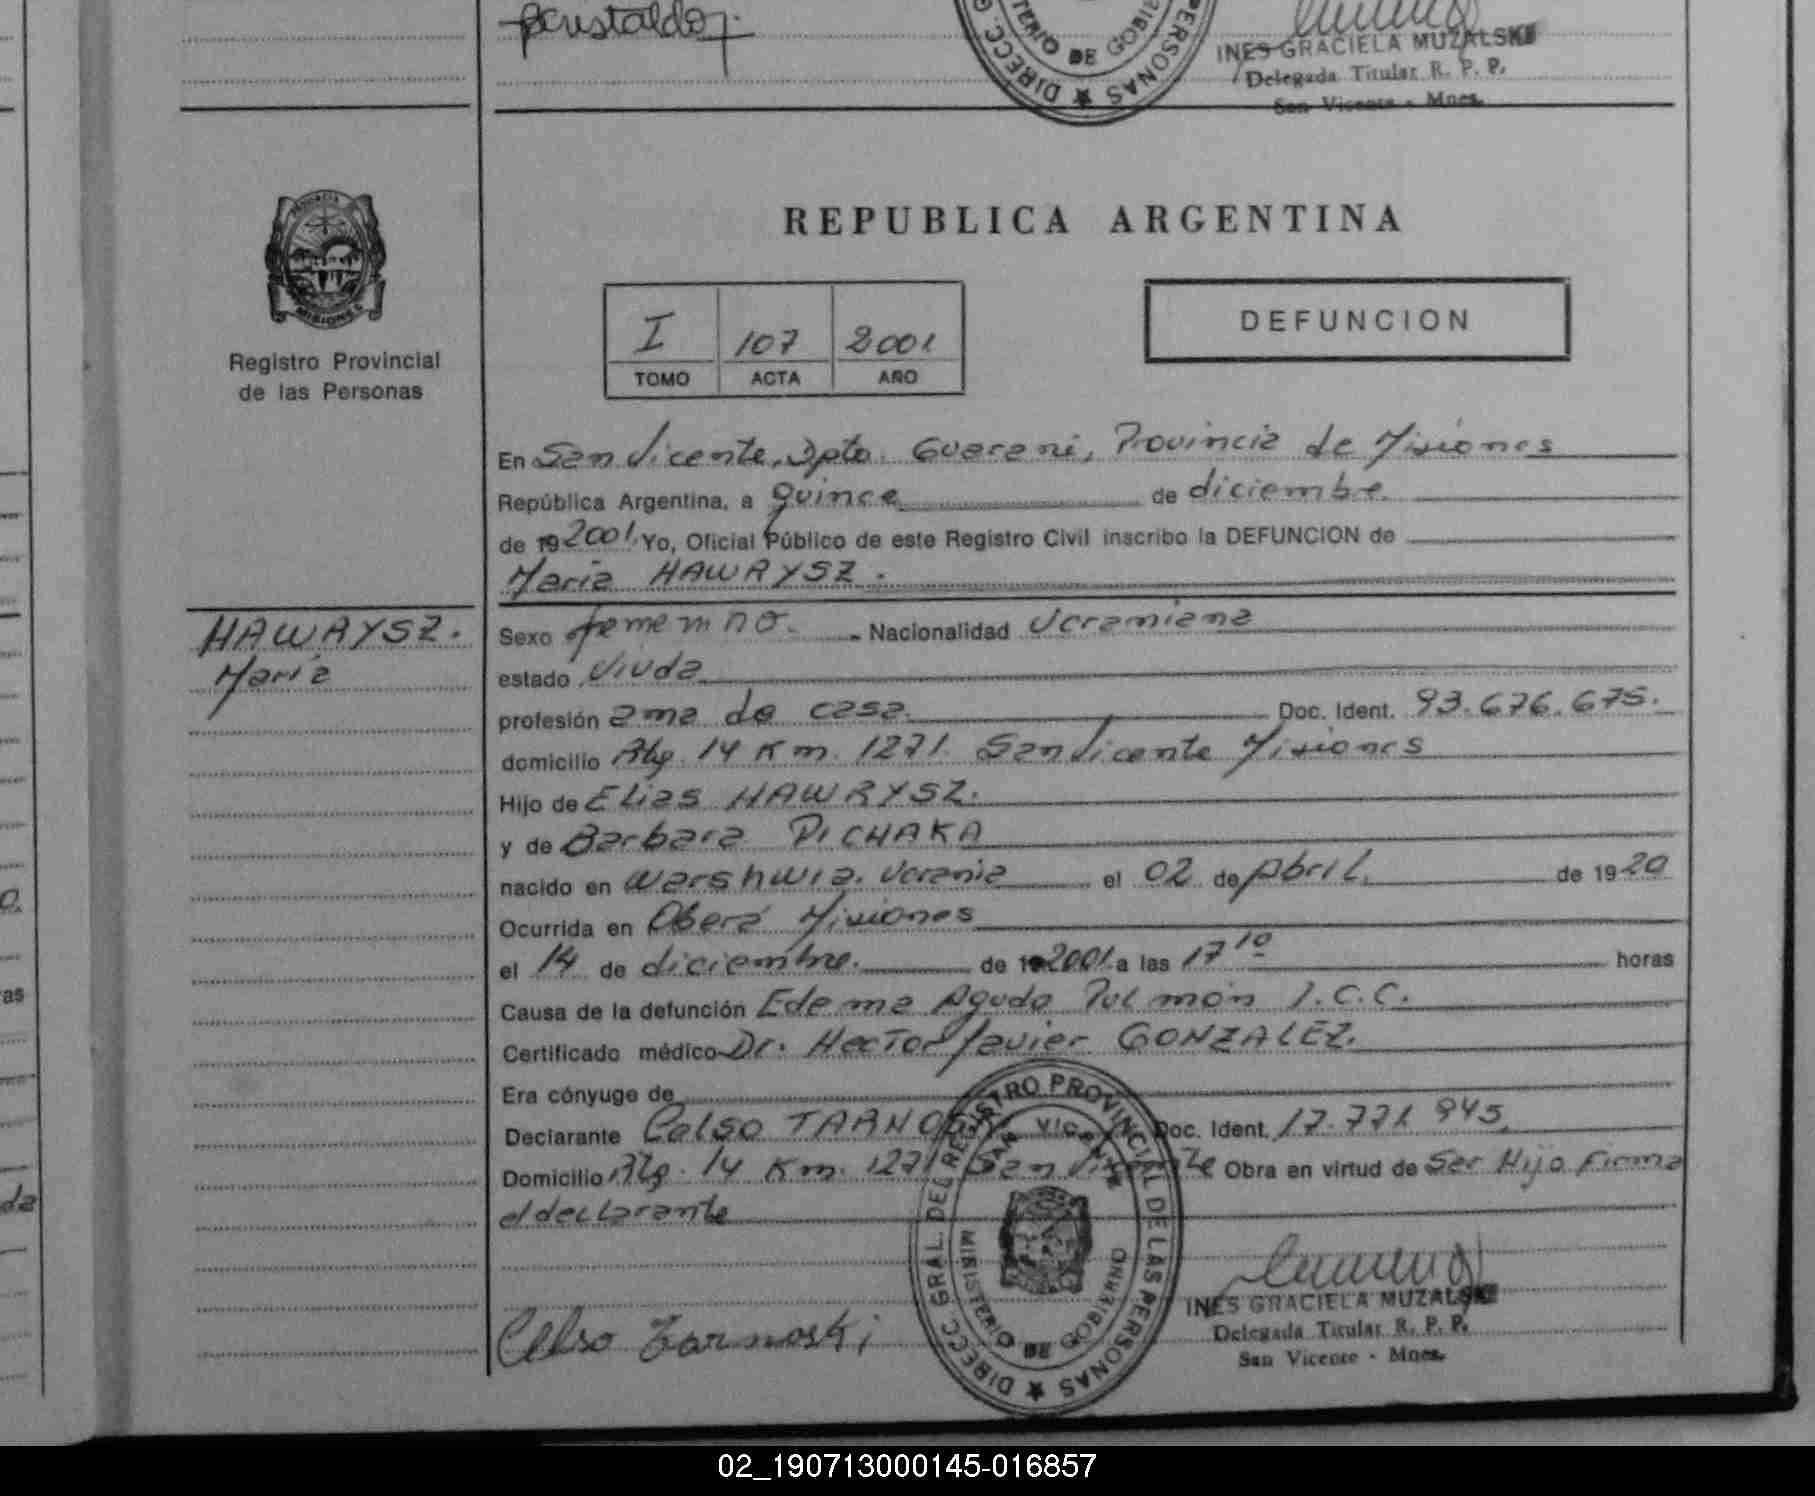 DIRECC. G
PERSONAS
MINISTERIO DE GOBIERNO
INES GRACIELA MUZALSKI
Delegada Titular R. P. P.
San Vicente - Mnes.
PROVINCIA
MISIONES
Registro Provincial
de las Personas
REPUBLICA ARGENTINA
I 107 2001
TOMO ACTA AÑO
DEFUNCION
En San Vicente, Dpto. Guarani, Provincia de Misiones
República Argentina, a quince de diciembre.
de 19 2001. Yo, Oficial Público de este Registro Civil inscribo la DEFUNCION de
Maria HAWRYSZ.
HAWRYSZ.
Maria
Sexo femenino. Nacionalidad Ucraniana
estado Viuda
profesión ama de casa. Doc. Ident. 93.676.675.
domicilio Rta. 14 Km. 1271. San Vicente Misiones
Hijo de Elias HAWRYSZ.
y de Barbara PICHAKA
nacido en Warshwia. Ucrania el 02 de Abril. de 1920
Ocurrida en Oberá Misiones
el 14 de diciembre. de 2001. a las 17 10 horas
Causa de la defunción Edema Agudo Pulmón I.C.C.
Certificado médico Dr. Hector Javier GONZALEZ.
Era cónyuge de
Declarante Celso TARNOSKI Doc. Ident. 17.771.945.
Domicilio Rta. 14 Km. 1271 San Vicente Obra en virtud de Ser Hijo Firma
el declarante
Celso Tarnoski
DIRECC. GRAL. DEL REGISTRO PROVINCIAL DE LAS PERSONAS
SAN VICENTE
MINISTERIO DE GOBIERNO
INES GRACIELA MUZALSKI
Delegada Titular R. P. P.
San Vicente - Mnes.
02_190713000145-016857